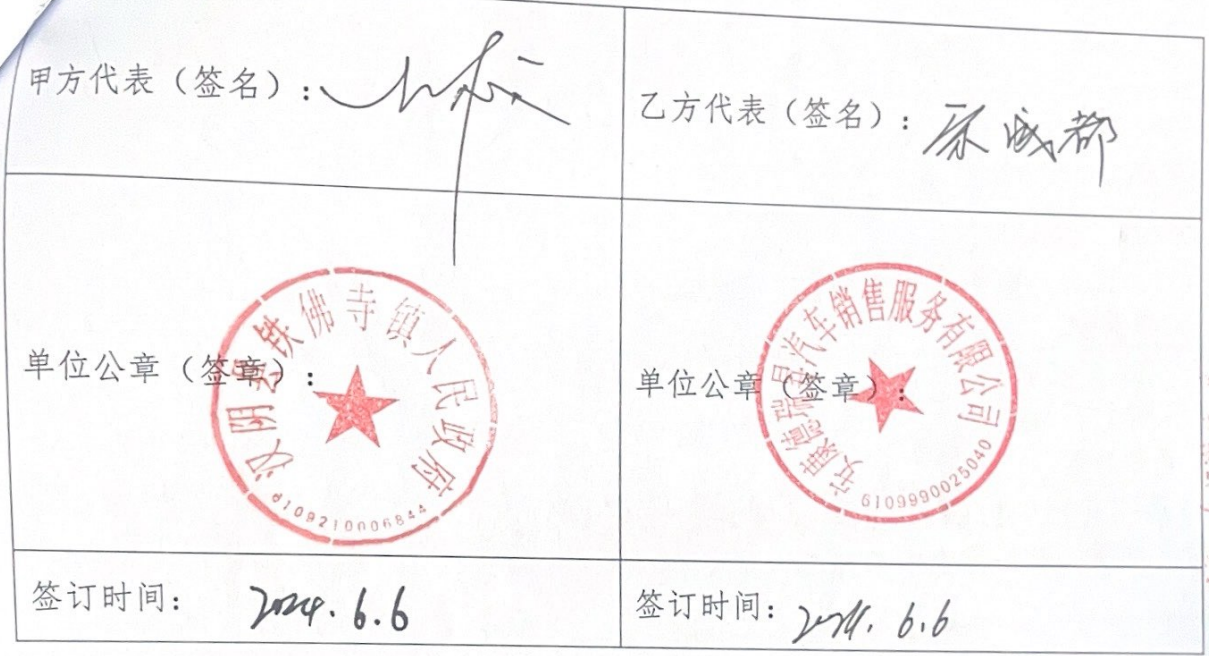 甲方代表（签名）:
乙方代表（签名）:
单位公章（签章）:
汉阴县铁佛寺镇人民政府
6109210006844
单位公章（签章）:
安康德瑞昌汽车销售服务有限公司
6109990025040
签订时间: 2024.6.6
签订时间: 2024.6.6